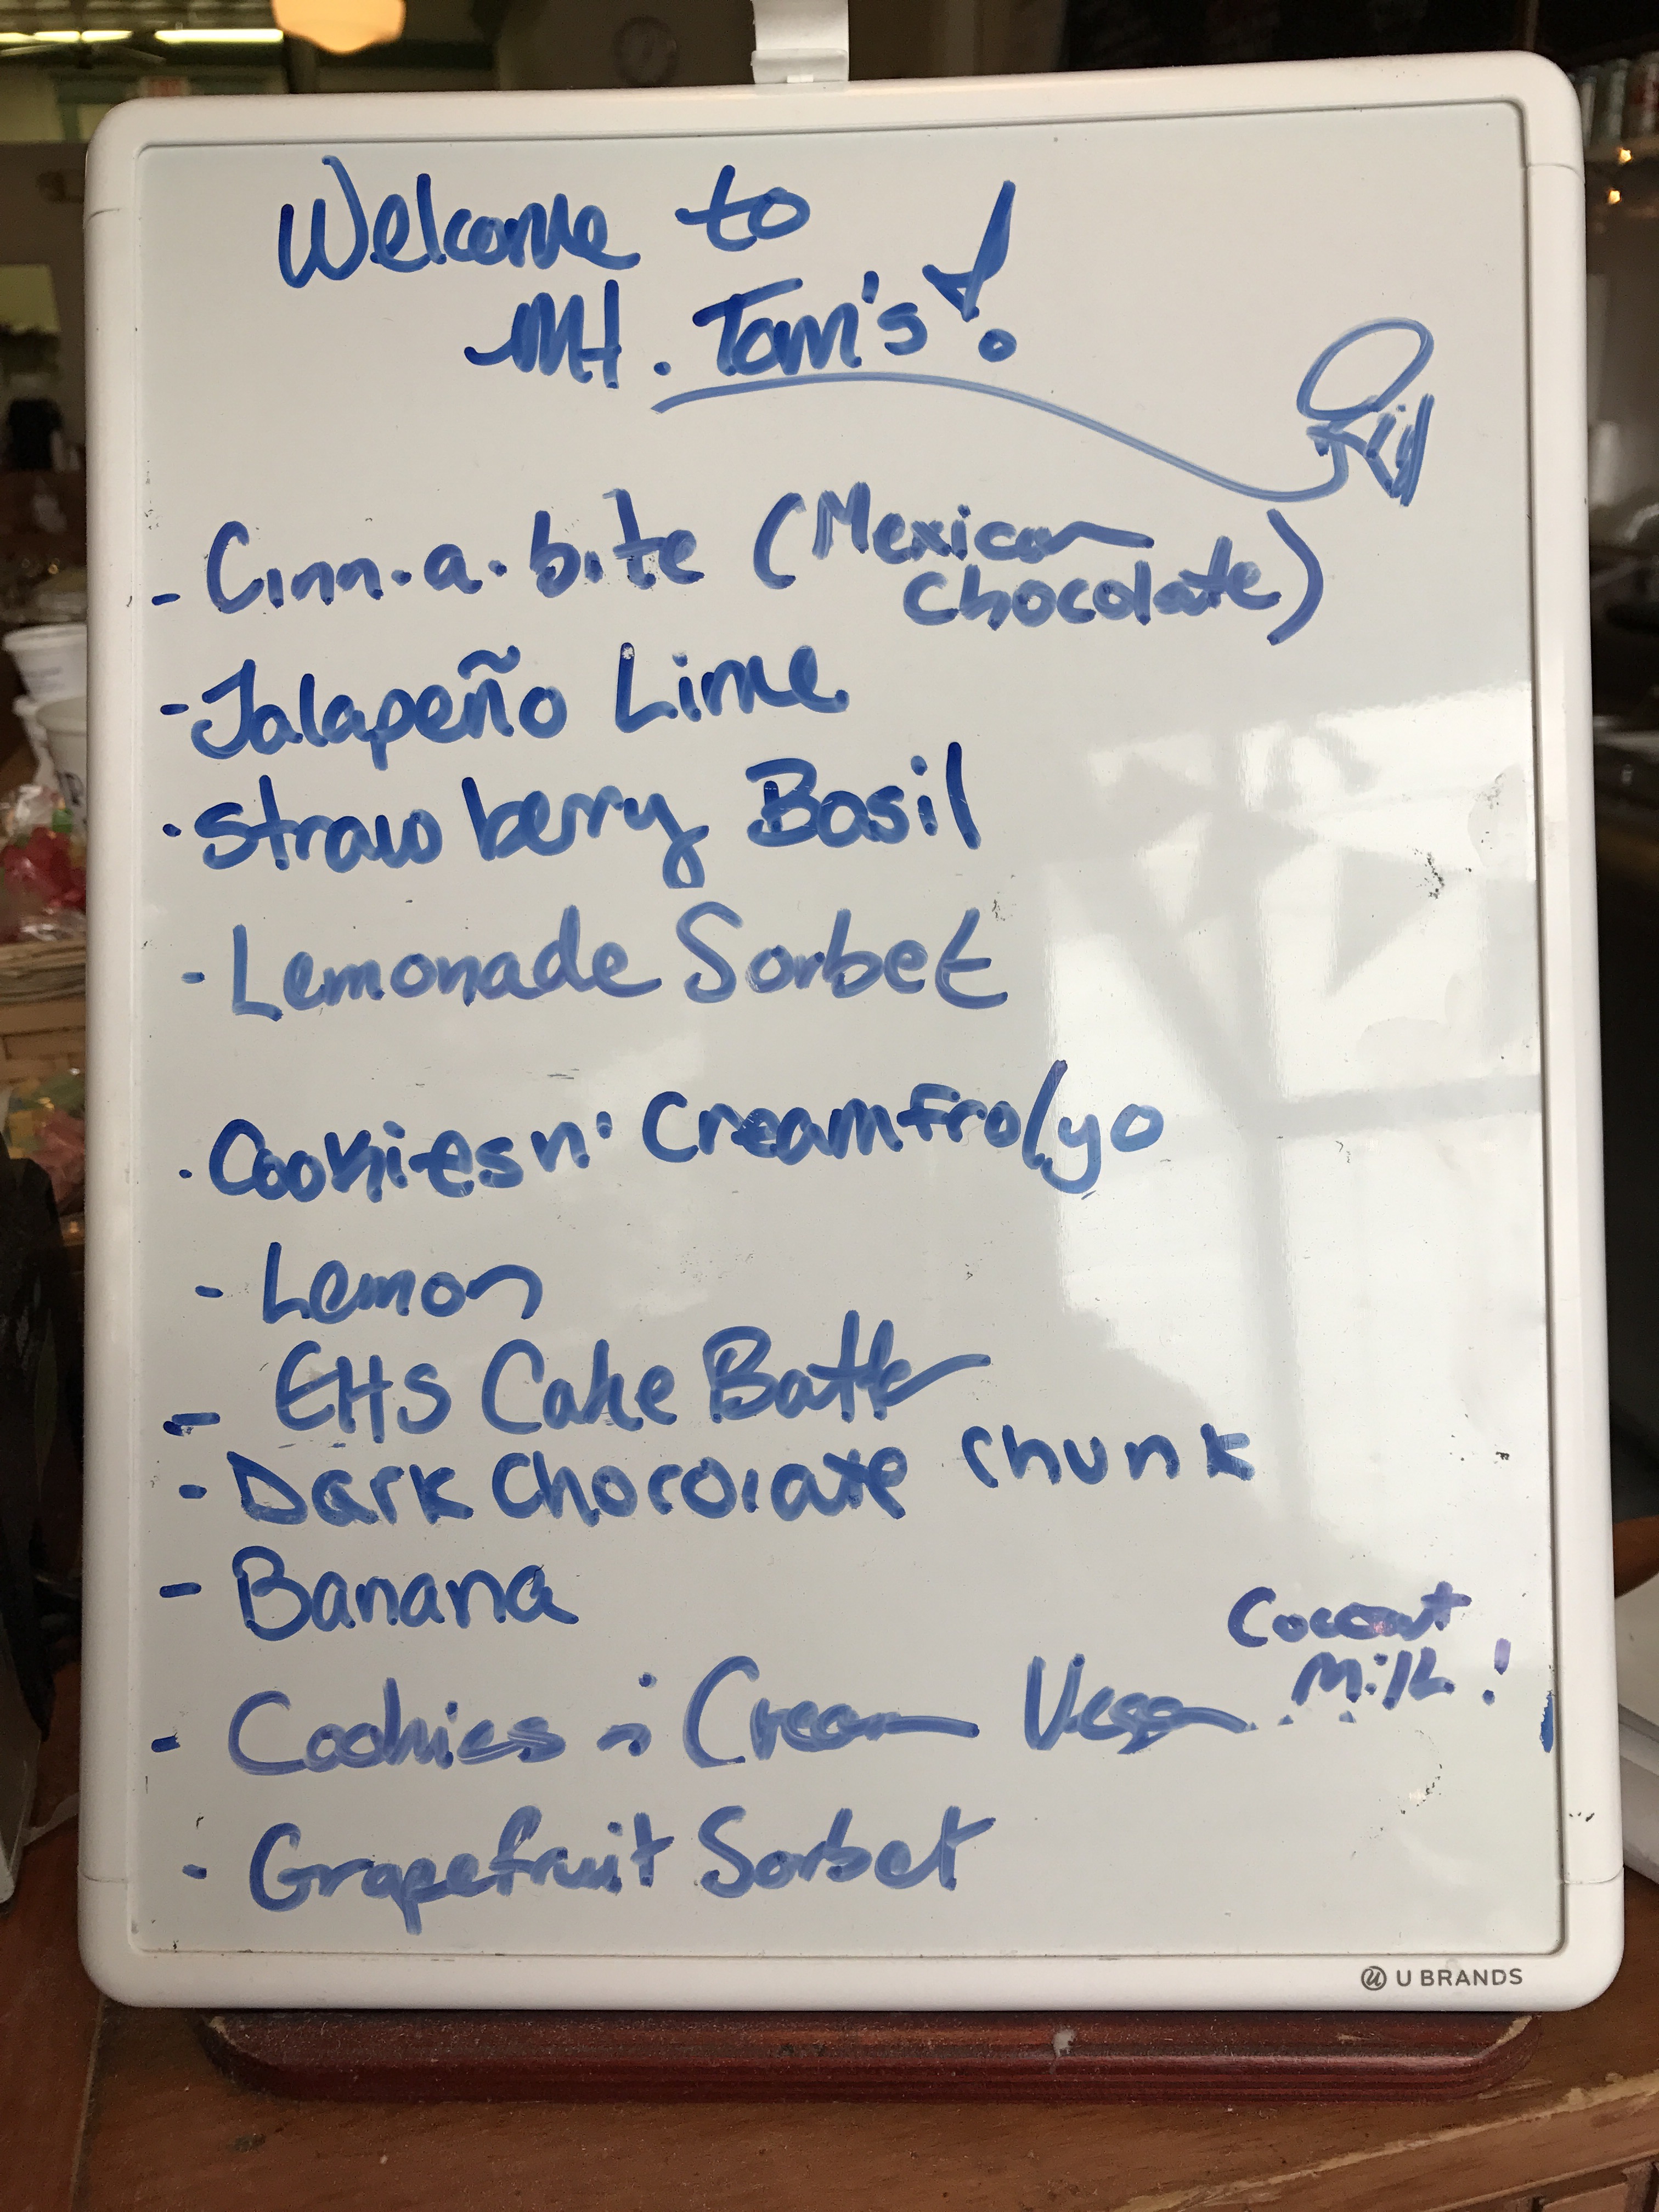 Welcome to
Mt. Tom's!
- Cinn.a.bite (Mexican
Chocolate)
- Jalapeño Lime
· Strawberry Basil
- Lemonade Sorbet
· Cookies n' Cream fro/yo
- Lemon
- EHS Cake Batter
- Dark Chocolate Chunk
- Banana
Coconut
- Cookies n' Cream Vegan... Milk!
- Grapefruit Sorbet
U BRANDS